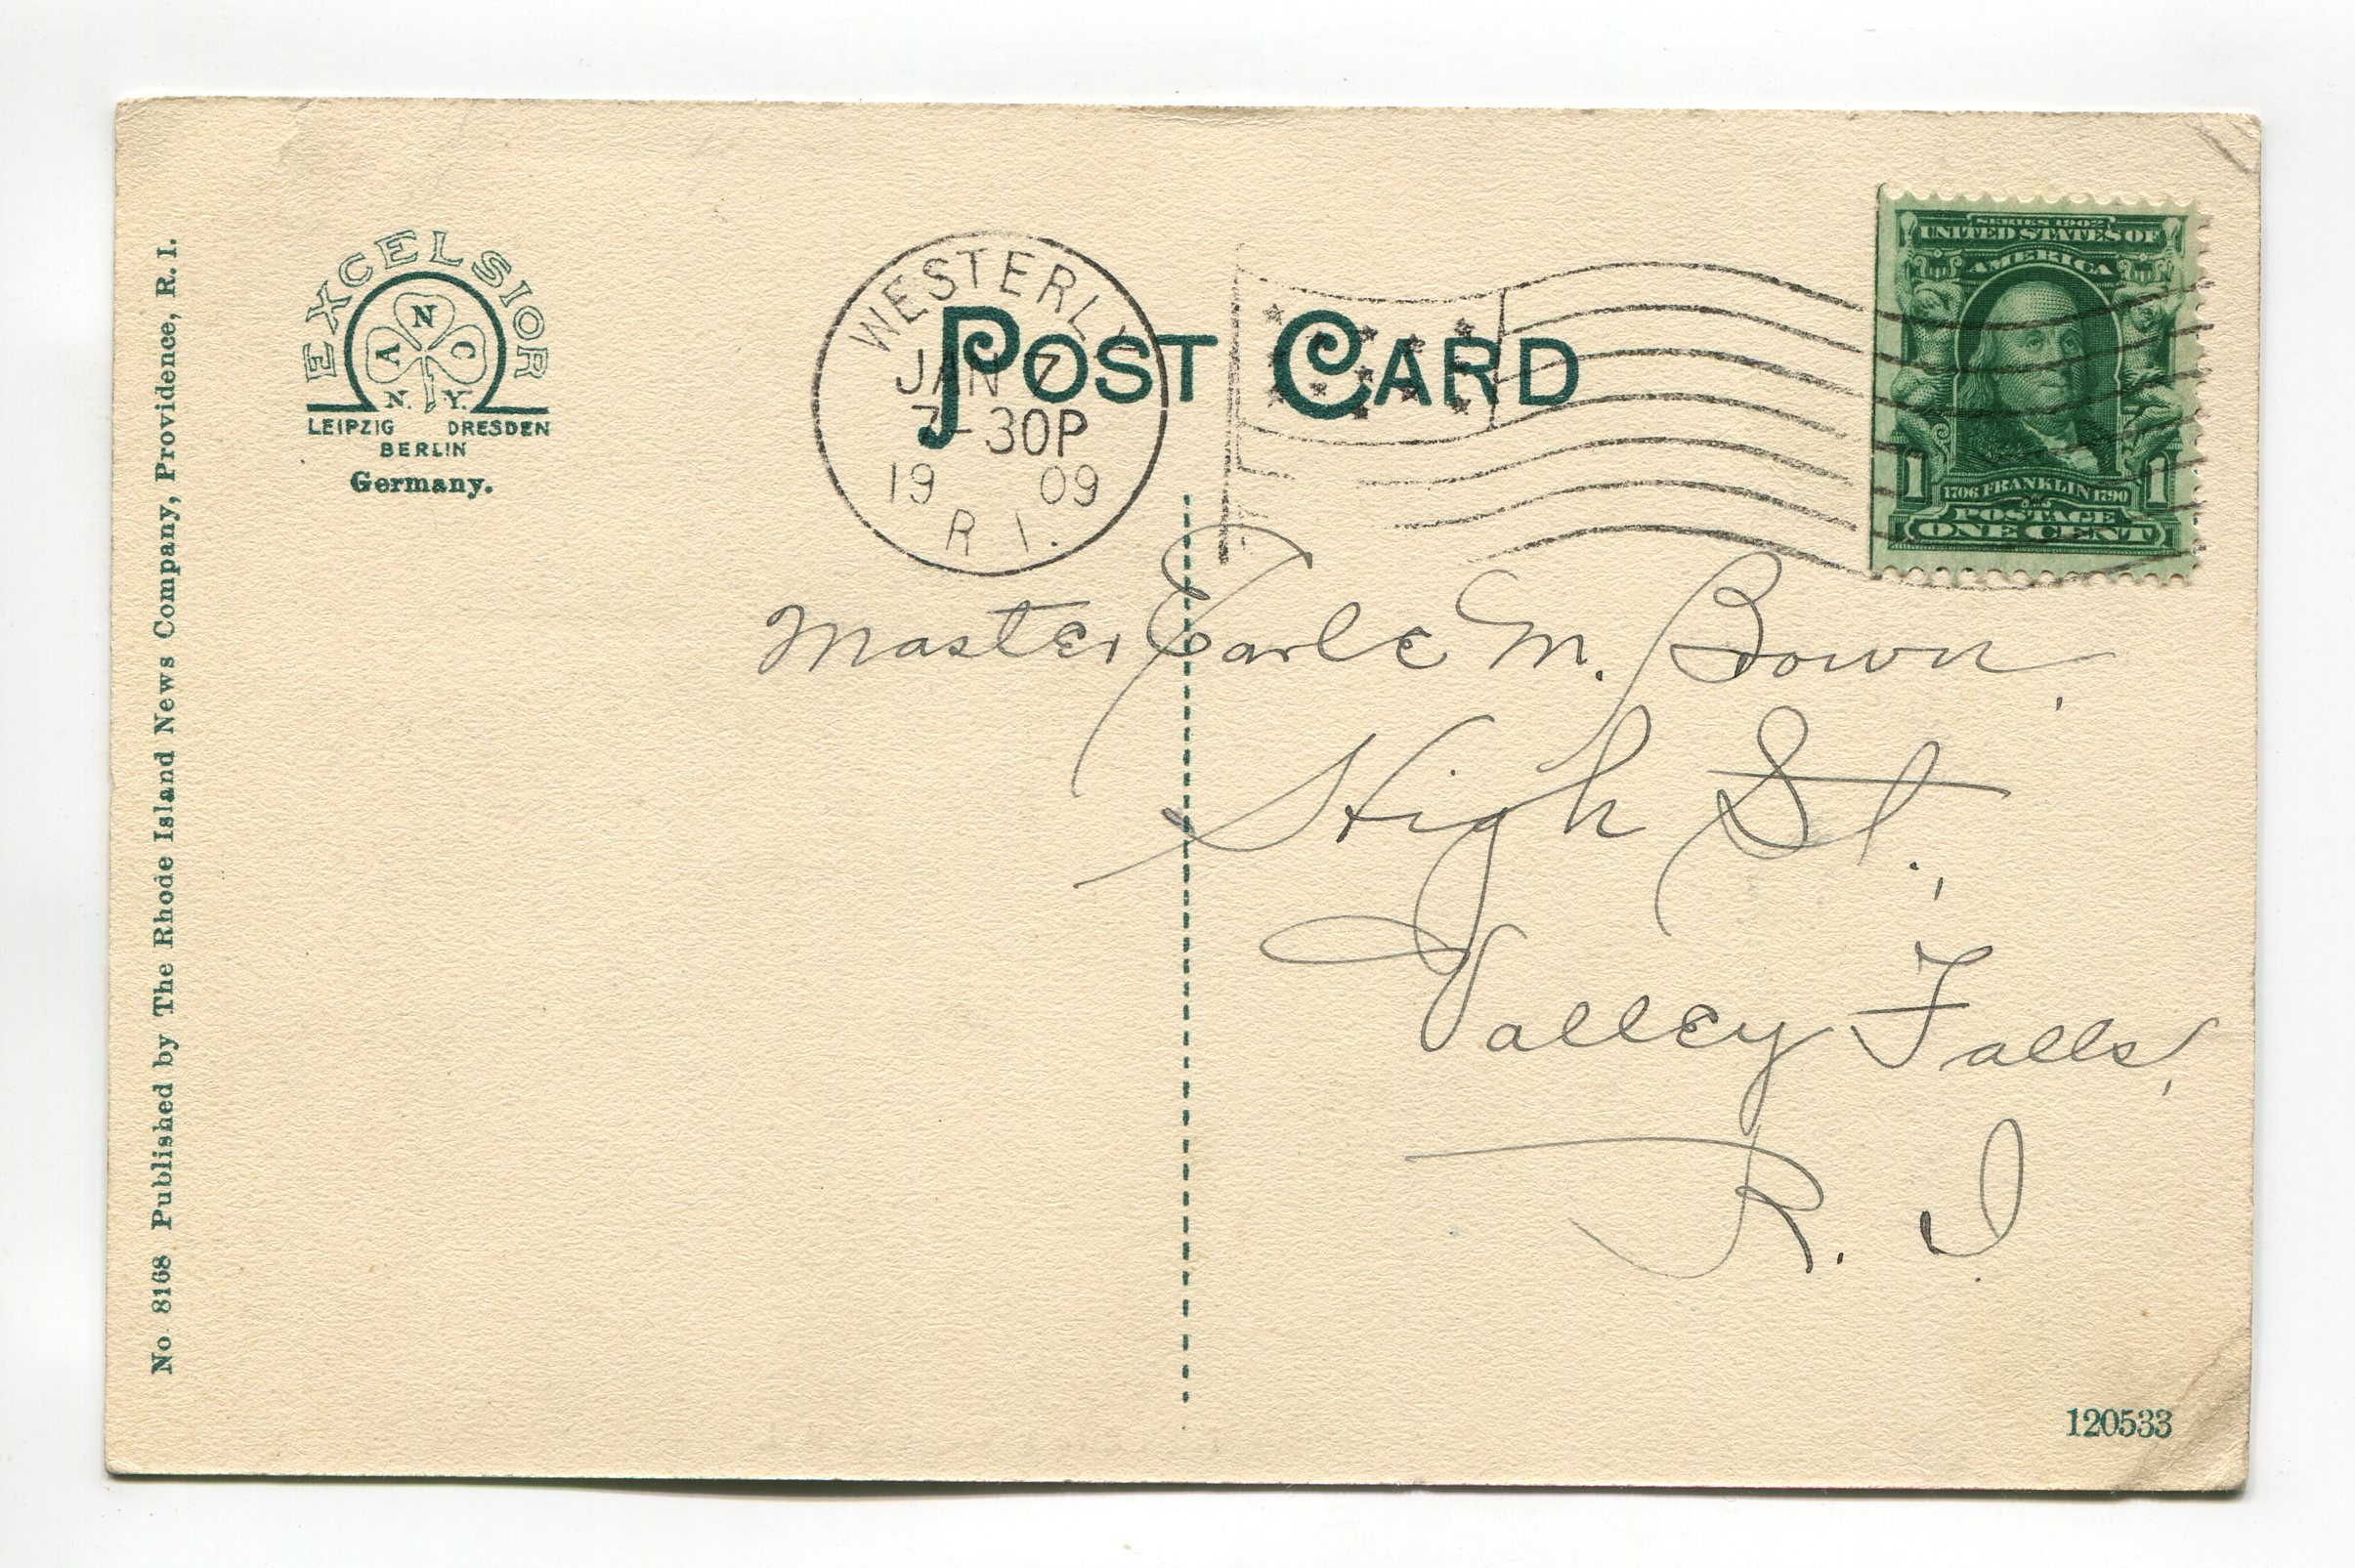 No. 8168 Published by The Rhode Island News Company, Providence, R. I.
EXCELSIOR
A N C
N. Y.
LEIPZIG DRESDEN
BERLIN
Germany.
POST CARD
WESTERLY
JAN 7
7-30P
19 09
R I.
SERIES 1902
UNITED STATES OF
AMERICA
1 1706 FRANKLIN 1790 1
POSTAGE
ONE CENT
Master Earle M. Bown,
High St.,
Valley Falls,
R. I
120533